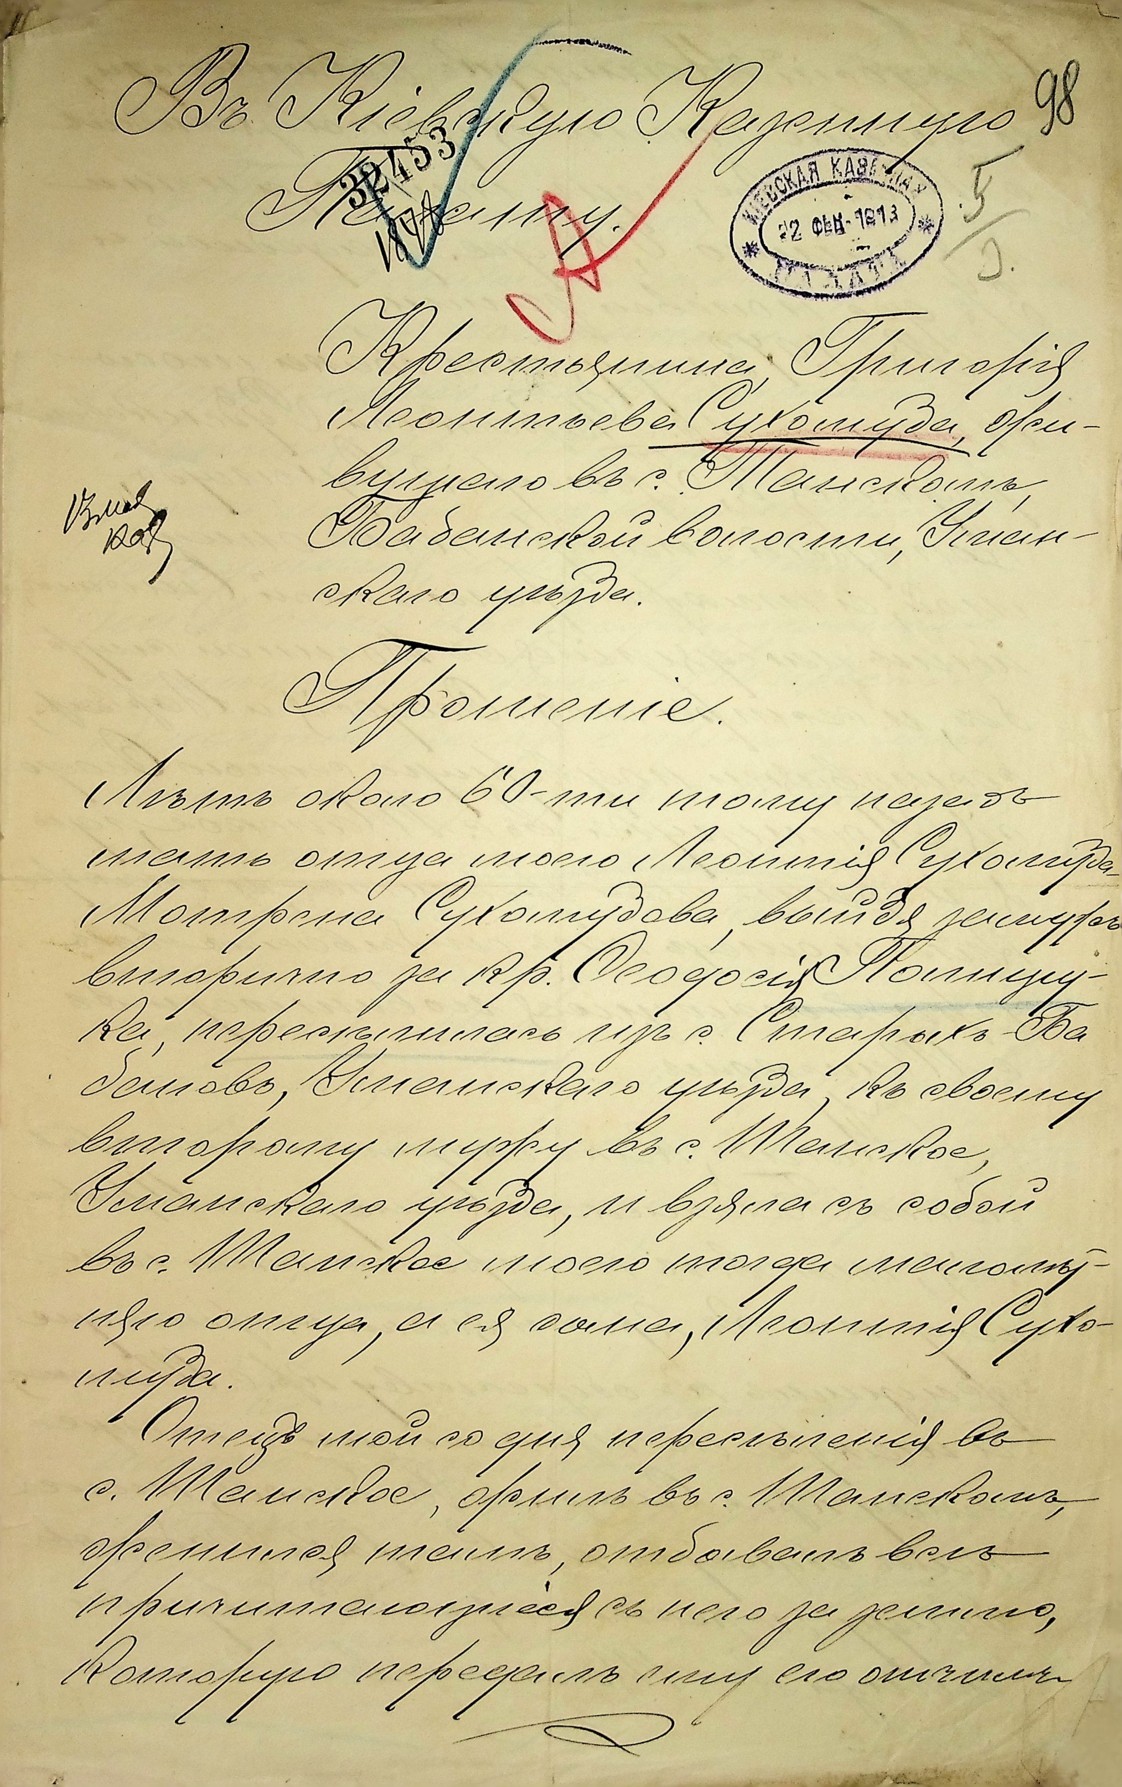 Въ Кіевскую Казенную
98
Палату.
32453
1878
КІЕВСКАЯ КАЗЕННАЯ
22 ФЕВ. 1913
ПАЛАТА
5
Крестьянина, Григорія
Леонтьева Сухомуда, жи-
вущаго въ с. Танскомъ,
Бабанской волости, Уман-
скаго уѣзда.
Прошеніе.
Лѣтъ около 60-ти тому назадъ
мать отца моего Леонтія Сухомуда
Мотрена Сухомудова, выйдя замужъ
вторично за кр. Ѳеодосія Полищу-
ка, переселилась изъ с. Старыхъ-Ба
бановъ, Уманскаго уѣзда, къ своему
второму мужу въ с. Танское,
Уманскаго уѣзда, и взяла съ собой
въ с. Танское моего тогда малолѣт-
няго отца, а ея сына, Леонтія Сухо-
муда.
Отецъ мой со дня переселенія въ
с. Танское, жилъ въ с. Танскомъ,
женился тамъ, отбывалъ всѣ
причитающіеся съ него за землю,
которую передалъ ему его отчимъ